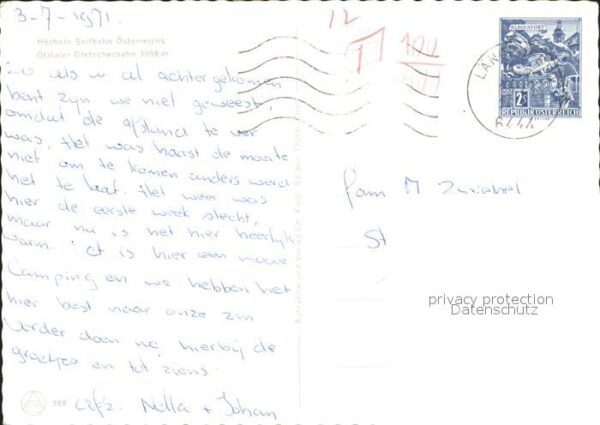 3-7-1971.
Höchste Seilbahn Österreichs
Ötztaler Gletscherbahn 3056 m
Zo als u al achtergekomen
bent zijn we niet geweest,
omdat de afstand te ver
was. Het was haast de moeite
niet om te komen anders werd
het te laat. Het weer was
hier de eerste week slecht,
maar nu is het hier heerlijk
warm. Het is hier een mooie
Camping en we hebben het
hier best naar onze zin
Verder doen we hierbij de
groetjes en tot ziens
Nella + Johan.
12
KLAGENFURT
2S
REPUBLIK ÖSTERREICH
Fam M Zwiebel
St
privacy protection
Datenschutz